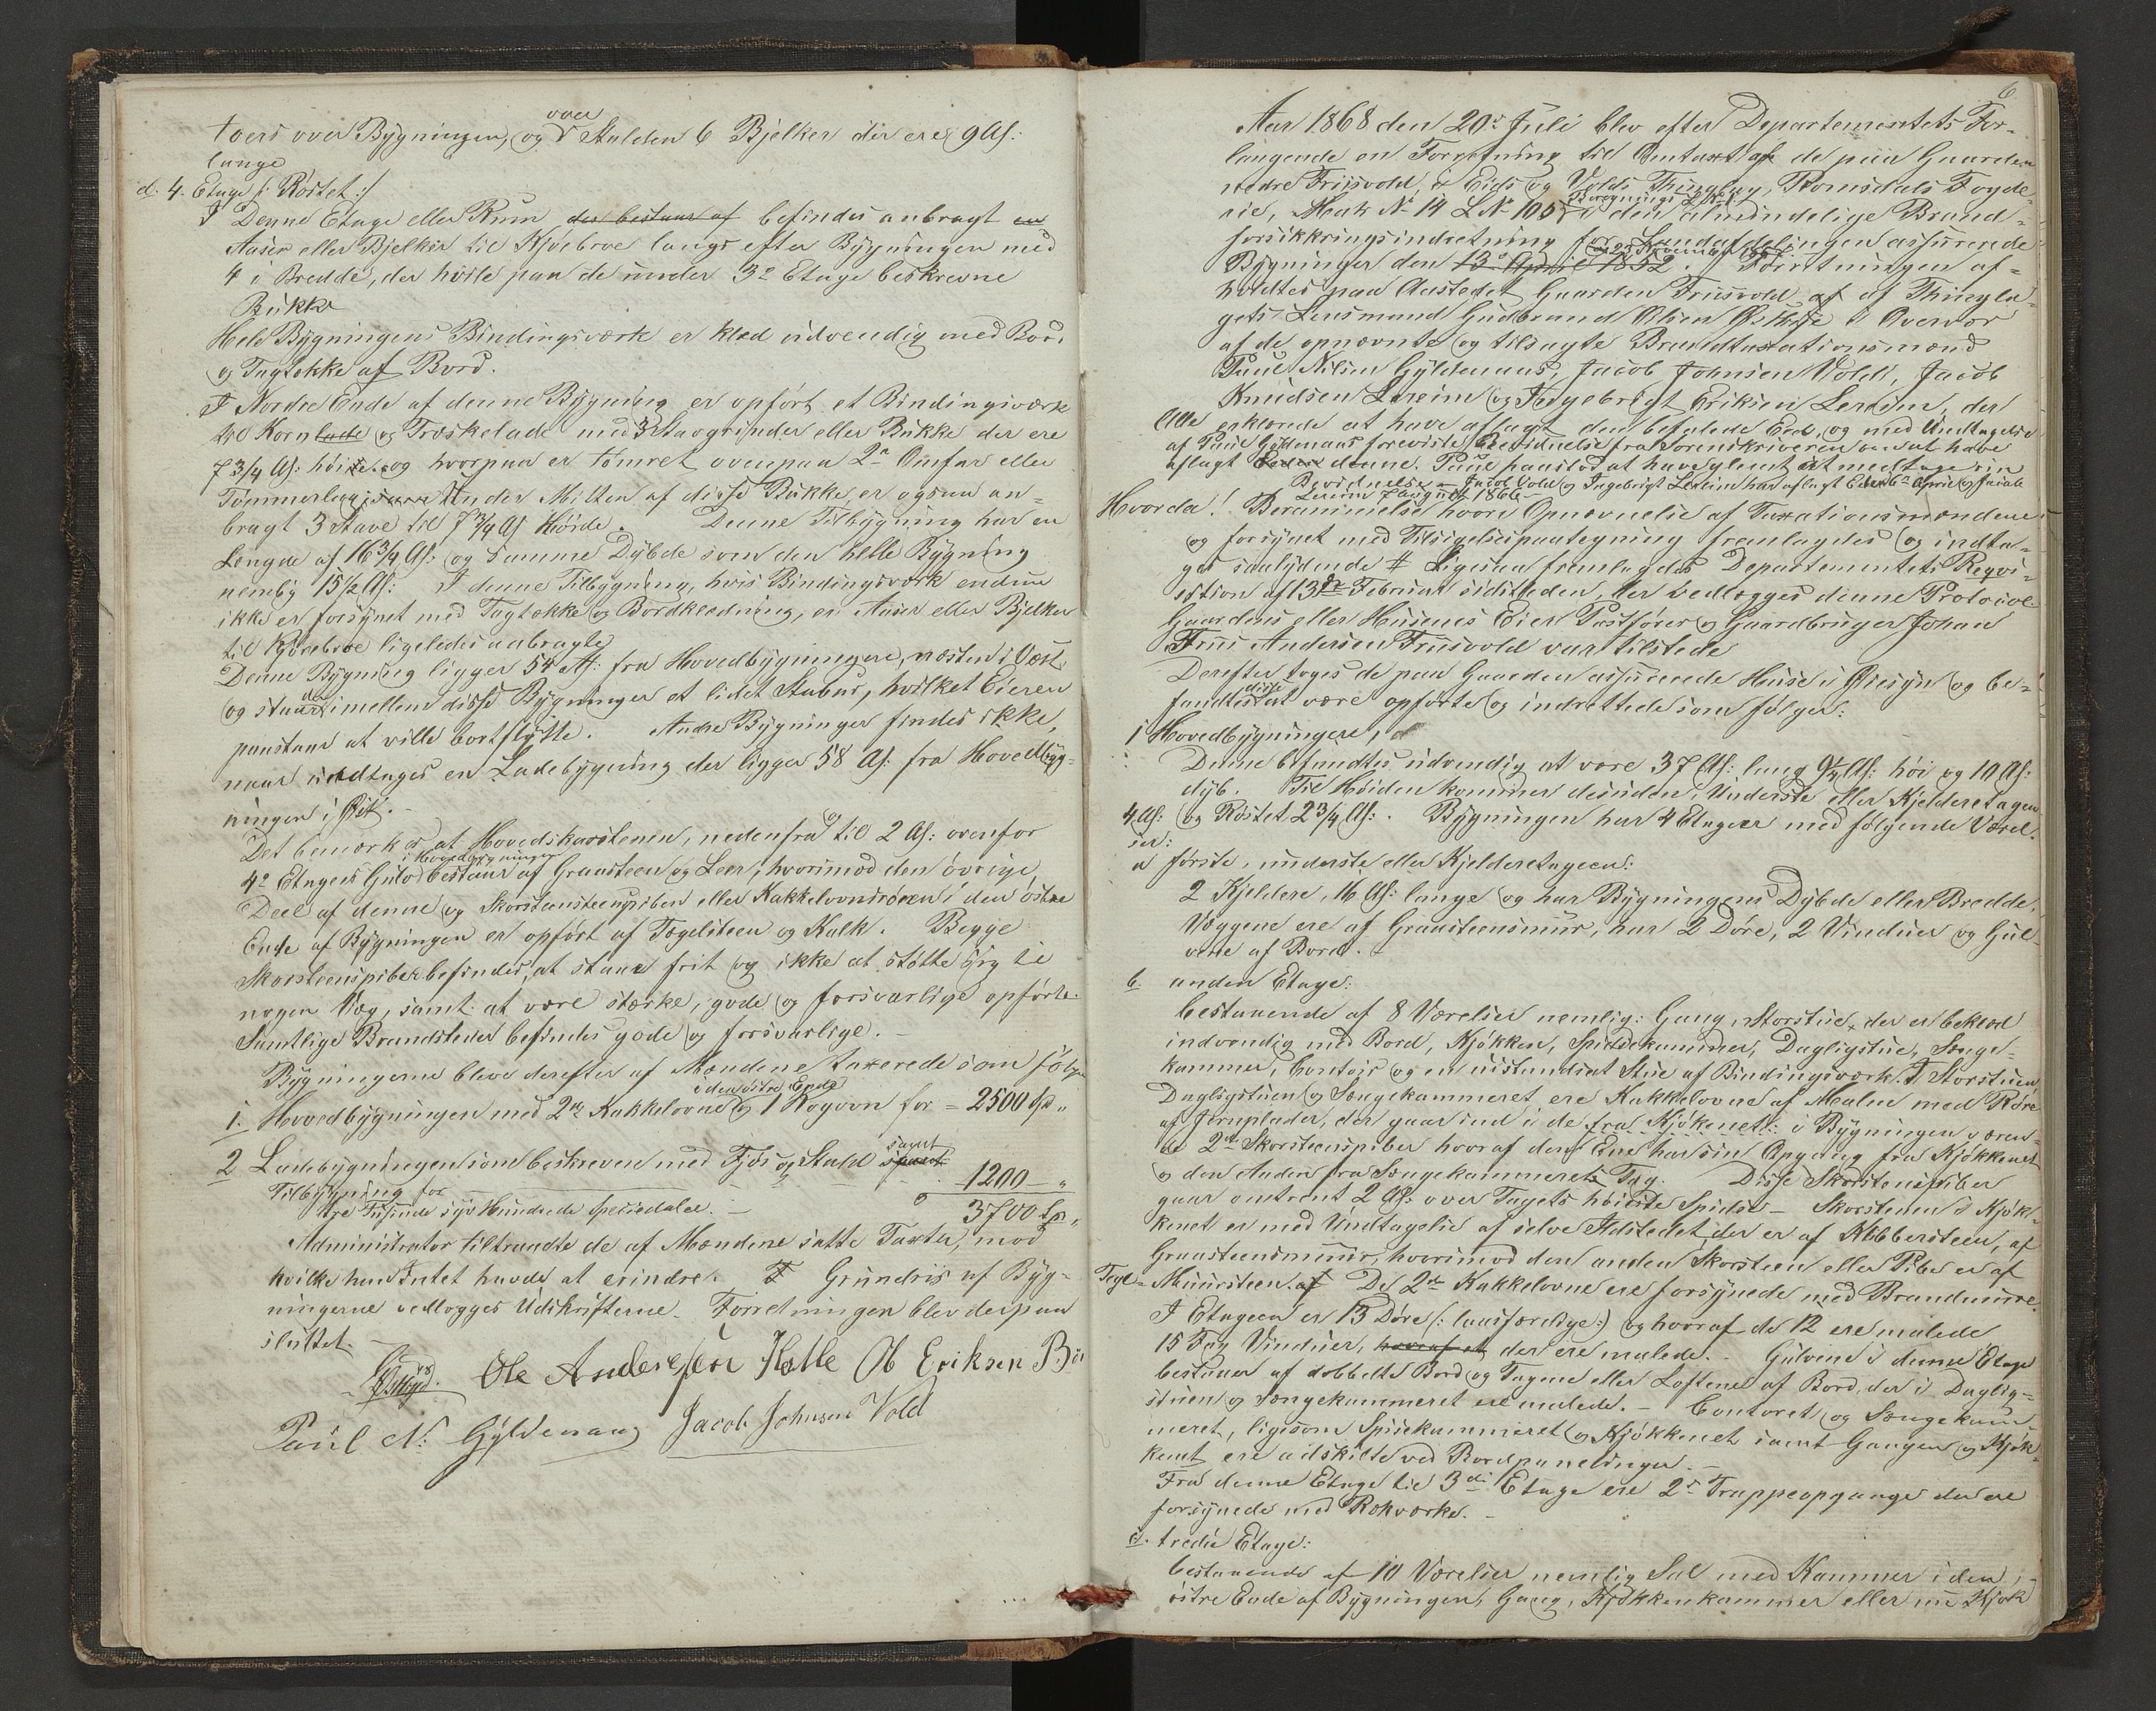 tvers over Bygningen, og over Stalden 6 Bjelker der ere 9 Al:
lange
d. 4. Etage /: Røstet :/
I Denne Etage eller Rum der bestaar af befindes anbragt en
Aaser eller Bjelker til Kjørebroe langs efter Bygningen med
4 i Bredde, der hvile paa de under 3e Etage beskrevne
Bukke
Hele Bygningens Bindingsværk er klæd udvendig med Bord
og Tagtekke af Bord.
I Nordre Ende af denne Bygning er opført et Bindingsværk
til Kornlade og Træskelade med 3 Stavgrinder eller Bukke der ere
7 3/4 Al: høie og hvorpaa er tømret ovenpaa 2n Omfar eller
Tømmerlag Under Midten af disse Bukke er ogsaa an-
bragt 3 Stave til 7 3/4 Al Høide. Denne Tilbygning har en
Længde af 16 3/4 Al: og samme Dybde som den hele Bygning
nemlig 15 1/2 Al: I denne Tilbygning, hvis Bindingsværk endnu
ikke er forsynet med Tagtekke og Bordklædning, er Aaser eller Bjelker
til Kjørebroe ligeledes anbragte
Denne Bygning ligger 54 Al: fra Hovedbygningen, næsten i Vest
og staaer imellem disse Bygninger et lidet Stabur, hvilket Eieren
paastaar at ville bortflytte. Andre Bygninger findes ikke,
naar undtages en Ladebygning der ligger 58 Al: fra Hovedbyg-
ningen i Øst. -
Det bemærkes, at Hovedskorstenen, nedenfra og til 2 Al: ovenfor
4e Etages Gulv i Hovedbygningen bestaar af Graasteen og Leer, hvorimod den øvrige
Deel af denne og Skorsteenspiben eller Kakkelovnsrøret i den østre
Ende af Bygningen er opført af Teglsteen og Kalk. Begge
Skorsteenspiber befindes, at staae frit og ikke at støtte sig til
nogen Væg, samt at være stærke, gode og forsvarlige opførte.
Samtlige Brandsteder befindes gode og forsvarlige. -
Bygningerne bleve derefter af Mændene taxerede som følger
1. Hovedbygningen med 2de Kakkelovne i den østre Ende og 1 Kogovn for = 2500 Sp "
2 Ladebygningen som beskreven med Fjøs og Stald samt
Tilbygning for 1200 - "
Tre Tusinde syv Hundrede Speciedaler. - 3700 Sp "
Administrator tiltraadte de af Mændene satte Taxter, mod
hvilke han Intet havde at erindre. Grundrids af Byg-
ningerne vedlægges Udskrifterne. Forretningen blev derpaa
sluttet.
Ole Andersen Hatle Ob Eriksen Bø
Paul N: Gyldenaas Jacob Johnsen Vold
6
Aar 1868 den 20de Juli blev efter Departementets For-
langende en Forretning til Omtaxt af de paa Gaarden
nedre Friisvold, i Eids og Volds Thinglag, Romsdals Fogde-
rie, Matr No 14 L No 105 i den almindelige Brand-
forsikkringsindretning for Landafdelingen assurerede
Bygninger den 13e April 1852. Forretningen af-
holdtes paa Aastedet Gaarden Friisvold af af Thingla-
gets Lensmand Gudbrand Olsen i Overvær
af de opnævnte og tilsagte Brandtaxationsmænd
Paul Nilsen Gyldenaas, Jacob Johnsen Vold, Jacob
Knudsen Lereim og Ingebrigt Eriksen Lereim, der
Alle erklærede at have aflagt den befalede Eed, og med Undtagelse
af Paul Gyldenaas foreviste Bevidnelse fra Sorenskriveren om at have
aflagt Eeden denne. Paul paastod at have glemt at medtage sin
Bevidnelse - Jacob Vold og Ingebrigt Lereim har aflagt Eed April og Jacob
Lereim 7 August 1866 -
Hvorda! Berammelse hvori Opnævnelse af Taxationsmændene
og forsynet med Tilsigelsespaategning fremlagdes og indta-
ges saalydende # Ligesaa fremlagdes Departementets Reqvi-
sition af 13de Februar sidstleden, der vedlægges denne Protocol
Gaardens eller Husenes Eier Postfører og Gaardbruger Johan
Friis Andersen Friisvold var tilstede
Derefter toges de paa Gaarden assurerede Huse i Øiesyn og be-
fandtes disse at være opførte og indrettede som følger:
1 Hovedbygningen,
Denne befandtes udvendig at være 37 Al: lang 9 1/4 Al: høi og 10 Al:
dyb. Til Høiden kommer desuden, Underste eller Kjelderetagen
4 Al: og Røstet 2 3/4 Al:. Bygningen har 4 Etager med følgende Værel-
ser:
a første, underste eller Kjelderetageen:
2 Kjeldere, 16 Al: lange og har Bygningens Dybde eller Bredde,
Væggene ere af Graasteensmuur, har 2 Døre, 2 Vinduer og Gul-
vene af Bord. -
b. anden Etage:
bestaaende af 8 Værelser nemlig: Gang, Storstue, der er beklæd
indvendig med Bord, Kjøkken, Spisekammer, Dagligstue, Senge-
kammer, Contoir og en uistandsat Stue af Bindingsværk. I Storstuen
Dagligstuen og Sængekammeret ere Kakkelovne af Malm med Røre
af Jernplader, der gaar ind i de fra Kjøkkenet: i Bygningen væren-
de 2de Skorsteenspiber hvoraf den Ene har sin Opgang fra Kjøkkenet
og den Anden fra Sængekammerets Tag. Disse Skorsteenspiber
gaar omtrent 2 Al: over Tagets høieste Spidse - Skorstenen i Kjøk-
kenet er med Undtagelse af selve Ildstedet, der er af Klebbersteen, af
Graasteensmuur, hvorimod den anden Skorsteen eller Pibe er af
Tegl- Muursteen. De 2de Kakkelovne ere forsynede med Brandmure.
I Etageen er 13 Døre (: laasfærdige :) og hvoraf de 12 ere malede
15 Fag Vinduer, hvoraf et der ere malede. - Gulvene i denne Etage
bestaaer af dobbelte Bord og Tagene eller Loftene af Bord, der i Daglig-
stuen og Sængekammeret ere malede. - Contoret og Sængekam-
meret, ligesom Spisekammeret og Kjøkkenet samt Gangen og Kjøk-
kenet ere adskilte ved Bordpanelinger. -
Fra denne Etage til 3die Etage ere 2de Trappeopgange der ere
forsynede med Rækværke. -
c. tredie Etage:
bestaaende af 10 Værelser nemlig Sal med Kammer i den
østre Ende af Bygningen, Gang, Kjøkkenkammer eller Kjøk